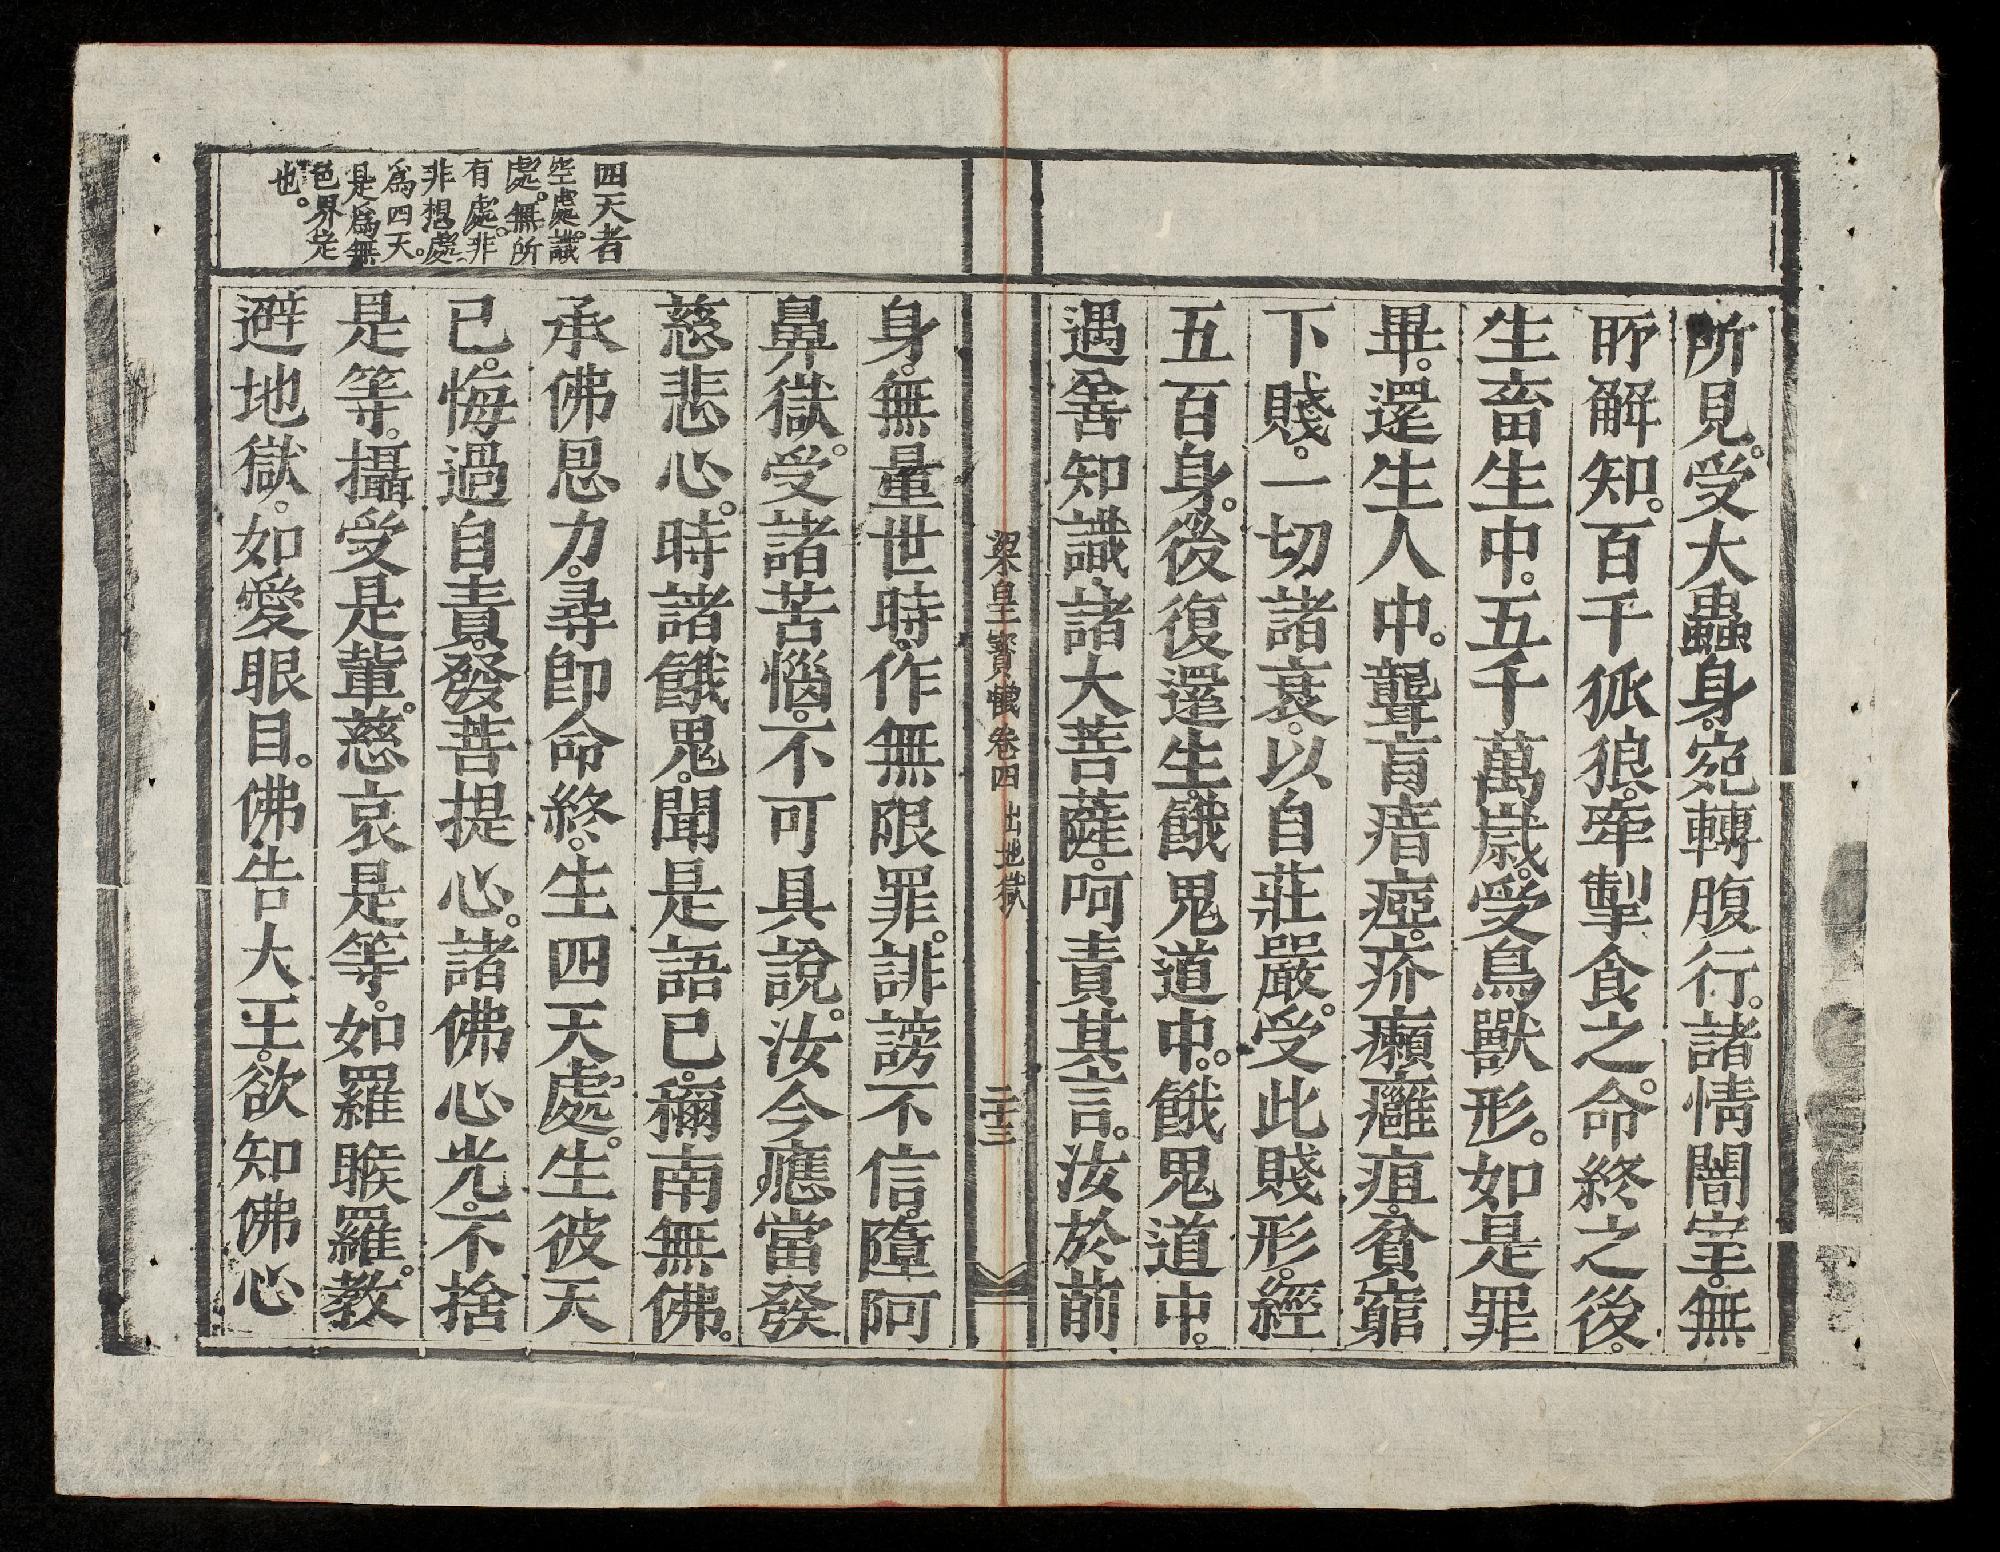 所見。受大蟲身。宛轉腹行。諸情闇室。無
所解知。百千狐狼。牽掣食之。命終之後。
生畜生中。五千萬歲。受鳥獸形。如是罪
畢。還生人中。聾盲瘖瘂。疥癩癰疽。貧窮
下賤。一切諸衰。以自莊嚴。受此賤形。經
五百身。後復還生。餓鬼道中。餓鬼道中。
遇善知識。諸大菩薩。呵責其言。汝於前
梁皇寶懺卷四 出地獄 二十三
身。無量世時。作無限罪。誹謗不信。墮阿
鼻獄。受諸苦惱。不可具說。汝今應當發
慈悲心。時諸餓鬼。聞是語已。稱南無佛。
承佛恩力。尋卽命終。生四天處。生彼天
已。悔過自責。發菩提心。諸佛心光。不捨
是等。攝受是輩。慈哀是等。如羅睺羅。教
避地獄。如愛眼目。佛告大王。欲知佛心
四天者
空處。識
處。無所
有處。非
非想處。
爲四天。
是爲無
色界定
也。